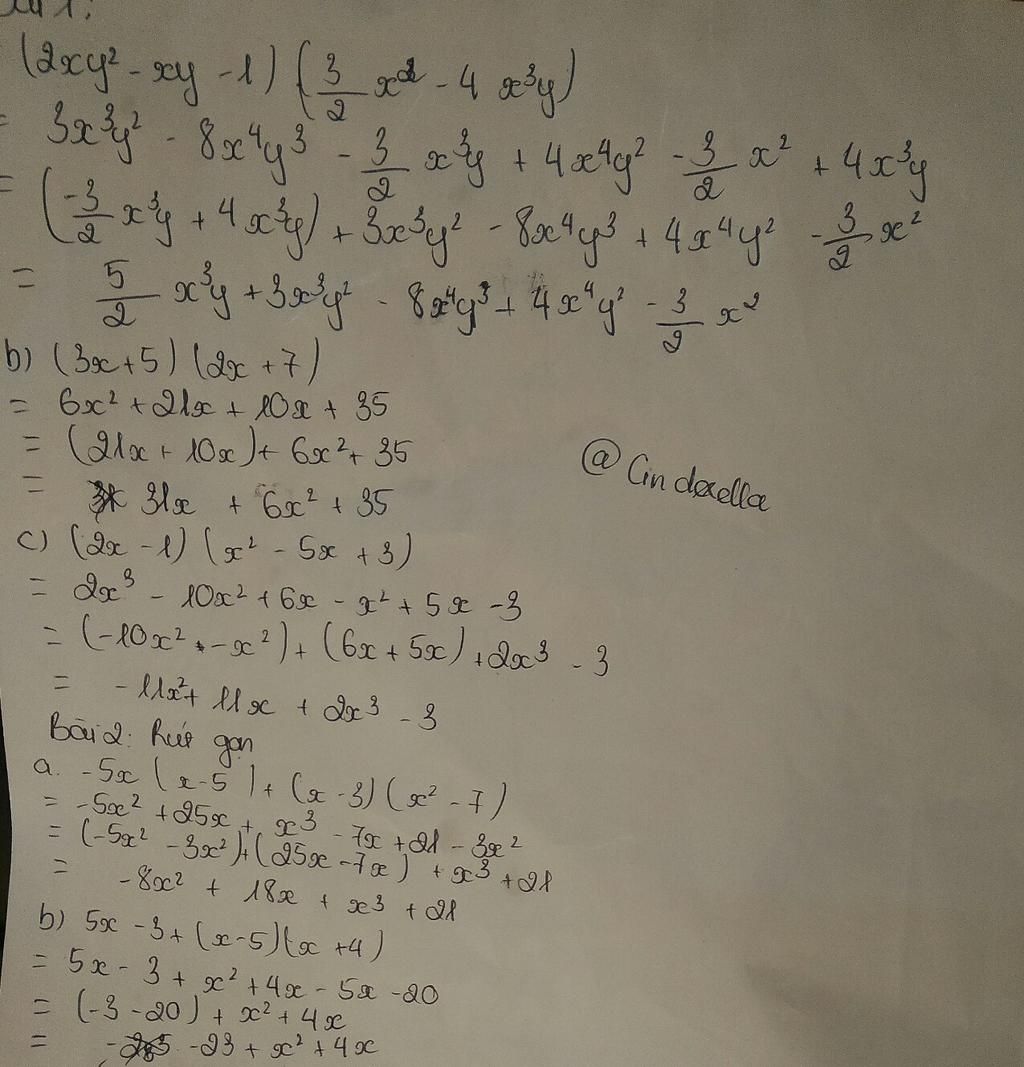 (2xy² - xy - 1) (3/2 x² - 4 x³y)
= 3x³y² - 8x⁴y³ - 3/2 x³y + 4x⁴y² - 3/2 x² + 4x³y
= (-3/2 x³y + 4x³y) + 3x³y² - 8x⁴y³ + 4x⁴y² - 3/2 x²
= 5/2 x³y + 3x³y² - 8x⁴y³ + 4x⁴y² - 3/2 x²
b) (3x + 5) (2x + 7)
= 6x² + 21x + 10x + 35
= (21x + 10x) + 6x² + 35
= 31x + 6x² + 35
@ Cinderella
c) (2x - 1) (x² - 5x + 3)
= 2x³ - 10x² + 6x - x² + 5x - 3
= (-10x² - x²) + (6x + 5x) + 2x³ - 3
= -11x² + 11x + 2x³ - 3
Bài 2: Rút gọn
a. -5x (x - 5) + (x - 3) (x² - 7)
= -5x² + 25x + x³ - 7x + 21 - 3x²
= (-5x² - 3x²) + (25x - 7x) + x³ + 21
= -8x² + 18x + x³ + 21
b) 5x - 3 + (x - 5) (x + 4)
= 5x - 3 + x² + 4x - 5x - 20
= (-3 - 20) + x² + 4x
= -23 + x² + 4x